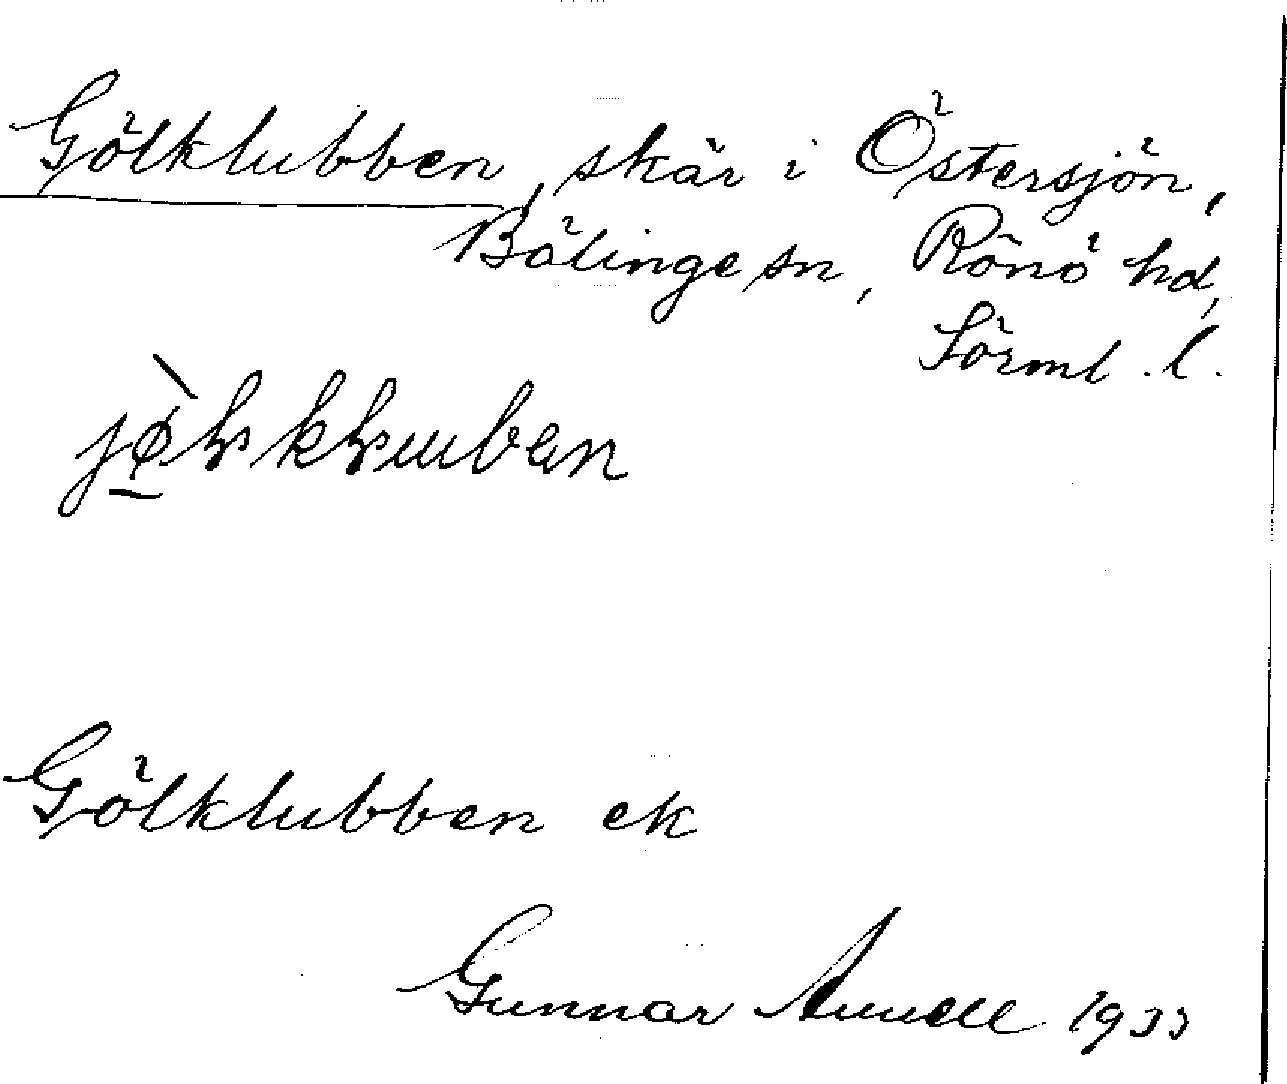 Gölklubben, skär i Östersjön,
Bälinge sn, Rönö hd,
Sörml. l.
Gölklubben ek
Gunnar 1933